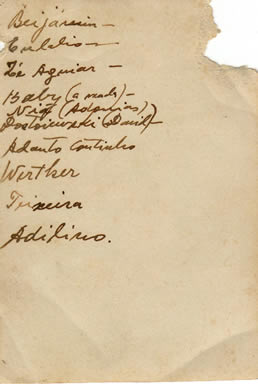 Beijámin -
Eulálio
Zé Aguiar -
Baby (a nada) -
Niq (Adonias)
Dostoiewski (Danilo
Adauto Coutinho
Werther
Teixeira
Adilino.